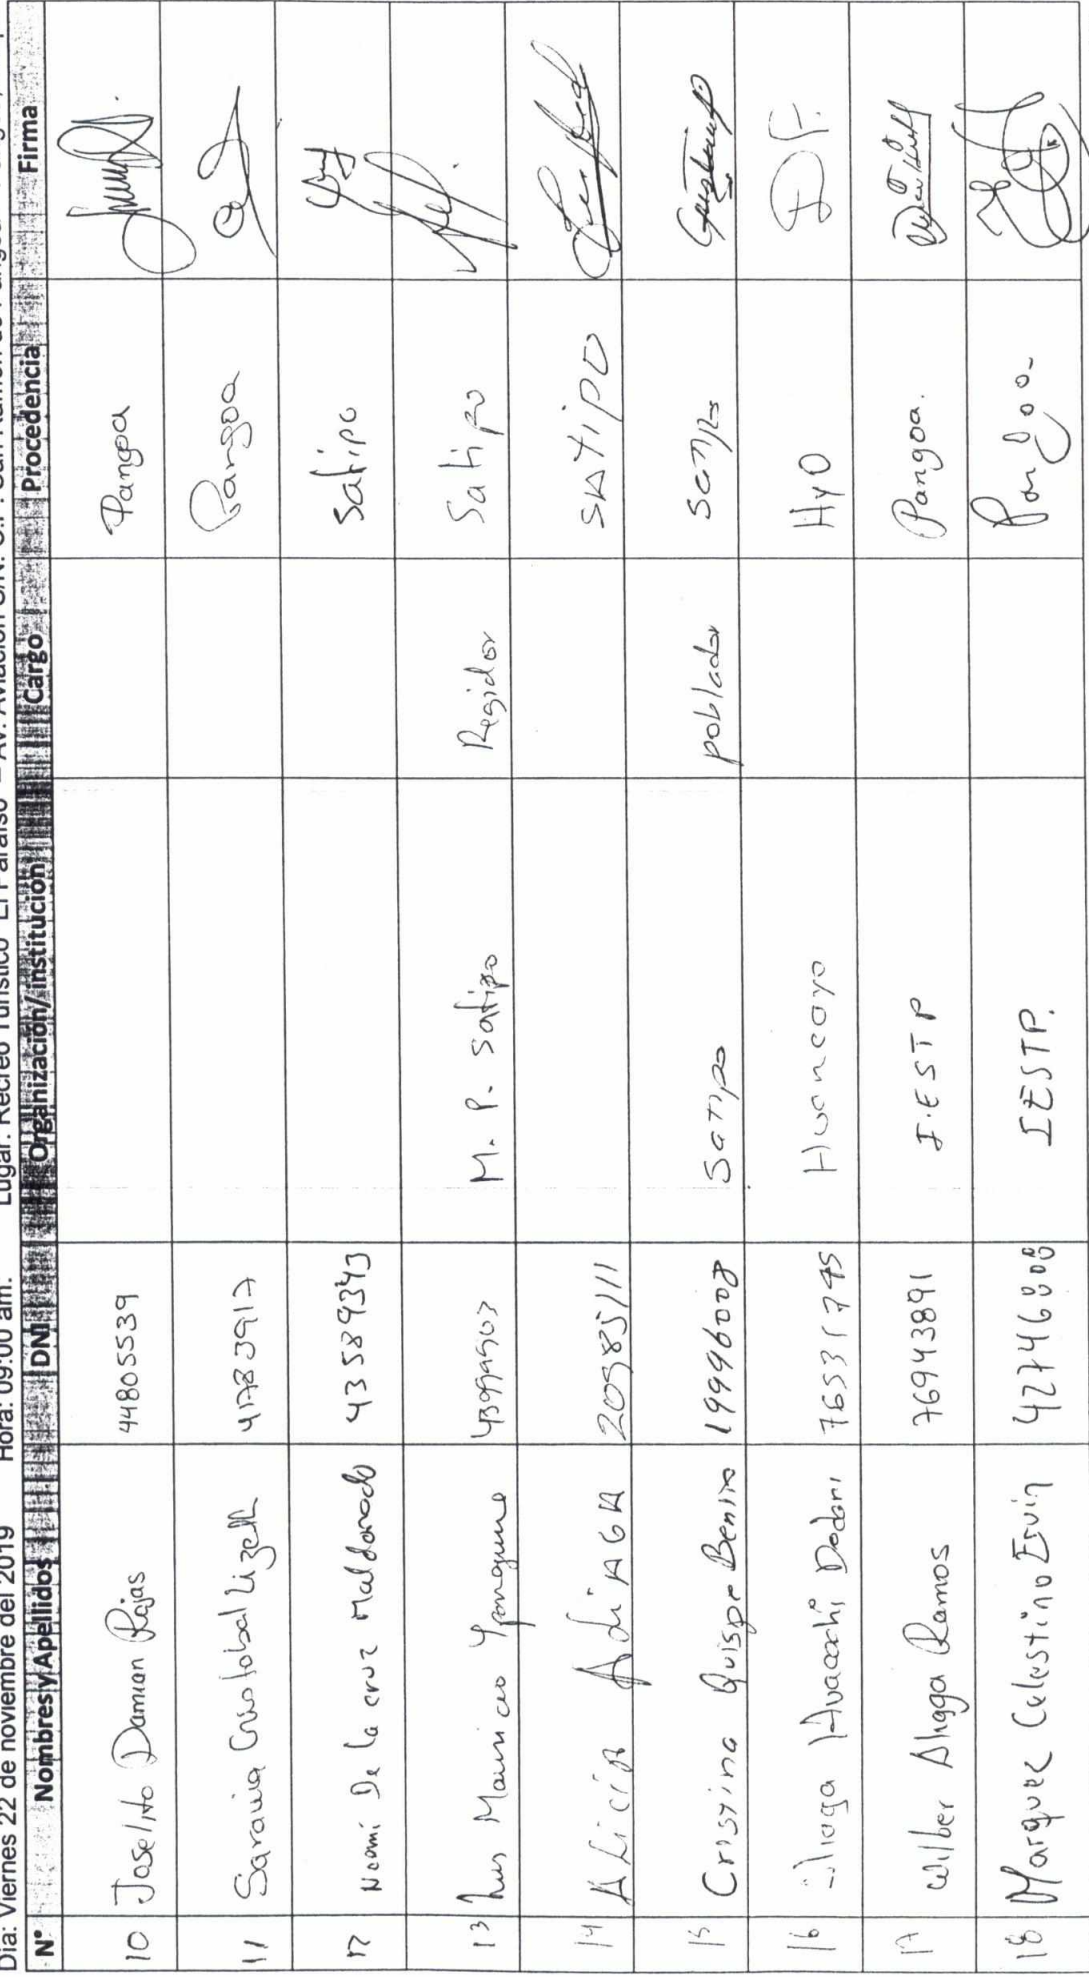 Día: Viernes 22 de noviembre del 2019 Hora: 09:00 am. Lugar: Recreo Turístico "El Paraíso" – Av. Aviación S/N. C.P. San Ramón de Pangoa
N° Nombres y Apellidos DNI Organización/institución Cargo Procedencia Firma
10 Joselito Damian Rojas 44805539 Pangoa
11 Saravia Cristobal Lizeth 41783917 Pangoa
12 Noemí De la cruz Maldonado 43589343 Satipo
13 Luis Mauricio M. P. Satipo Regidor Satipo
14 ALICIA AdiAGA SATIPO
15 Cristina Quispe Benito 19996008 Satipo poblador Satipo
16 Huancayo HyO D.F.
17 Wilber Aliaga Ramos 76943891 I.ESTP Pangoa.
18 Marquez Celestino Ervin 42746808 IESTP. Pangoa